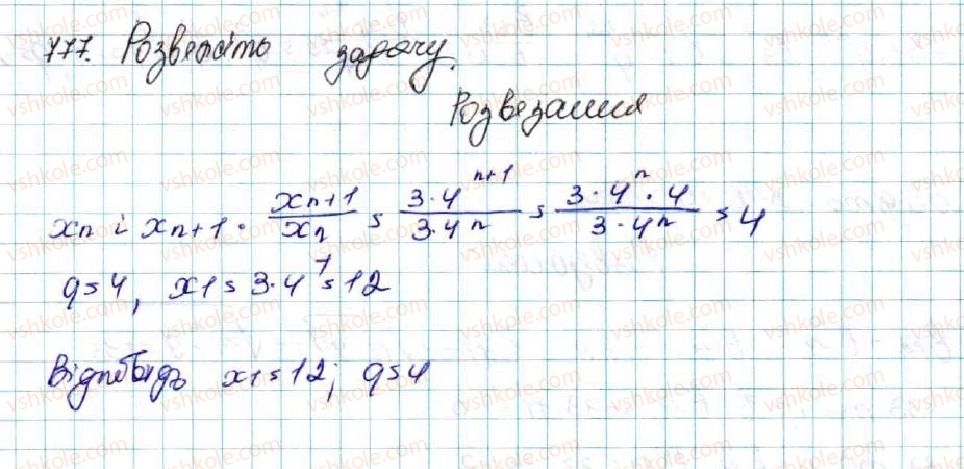 777. Розвежіть задачу.
Розвезания
xn i xn+1. xn+1/xn = 3·4^(n+1)/3·4^n = 3·4^n·4/3·4^n = 4
q=4, x1=3·4^1=12
Відповідь x1=12; q=4